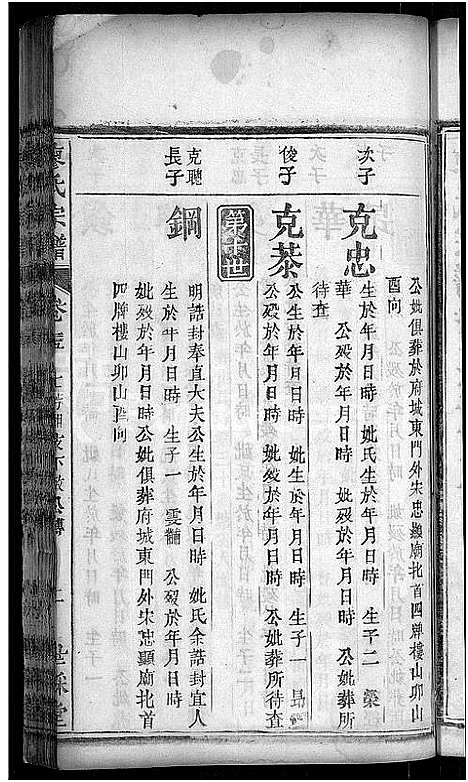 公妣俱葬於府城東門外宋忠顯廟北首四牌樓山卯山
酉向
次子
克忠
公生於年月日時 妣氏生於年月日時 生子二 
華 公歿於年月日時 妣歿於年月日時 公妣葬所
待查
俊子
克恭
公生於年月日時 妣生於年月日時 生子一 昂
公歿於年月日時 妣歿於年月日時 公妣葬所待查
第十世
克聰
長子
鋼
明誥封奉直大夫公生於年月日時 妣氏余誥封宜人
生於年月日時 生子一 雲龍 公歿於年月日時
妣歿於年月日時公妣俱葬府城東門外宋忠顯廟北首
四牌樓山卯山酉向
廖氏宗譜